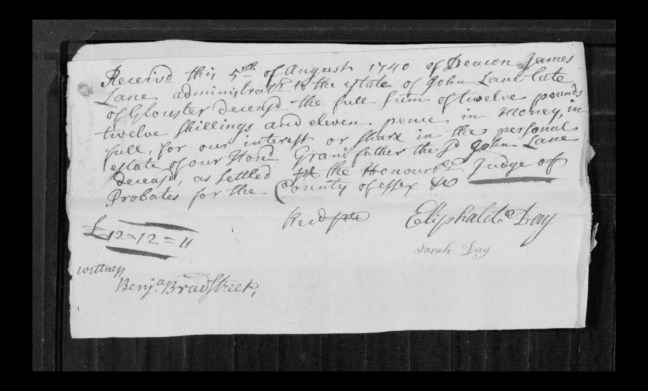 Received this 5th of August 1740 of Deacon James
Lane administratr to the Estate of John Lane late
of Glouster Deceasd the full sum of twelve pounds
twelve shillings and eleven pence in money, in
full, for our interest or share in the personal
estate of our Hond Grandfather the sd John Lane
Deceasd, as settled the Honource Judge of
Probates for the County of Essex &c
£12=12=11
Eliphalet Day
Sarah Day
wittness
Benja Bradstreet,